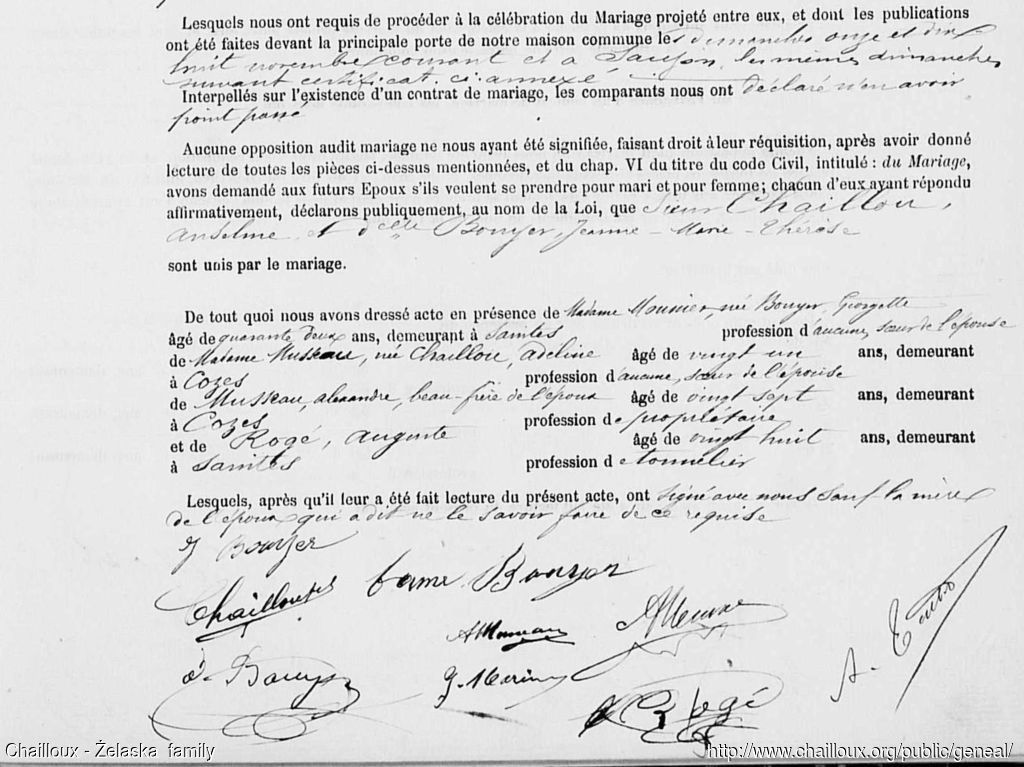 Lesquels nous ont requis de procéder à la célébration du Mariage projeté entre eux, et dont les publications
ont été faites devant la principale porte de notre maison commune les dimanches onze et dix
huit novembre courant et à Saujon, les mêmes dimanches
suivant certificat ci-annexé
Interpellés sur l'existence d'un contrat de mariage, les comparants nous ont déclaré n'en avoir
point passé
Aucune opposition audit mariage ne nous ayant été signifiée, faisant droit à leur réquisition, après avoir donné
lecture de toutes les pièces ci-dessus mentionnées, et du chap. VI du titre du code Civil, intitulé : du Mariage,
avons demandé aux futurs Epoux s'ils veulent se prendre pour mari et pour femme ; chacun d'eux ayant répondu
affirmativement, déclarons publiquement, au nom de la Loi, que Sieur Chaillou,
Anselme et delle Bouyer, Jeanne-Marie-Thérèse
sont unis par le mariage.
De tout quoi nous avons dressé acte en présence de Madame Mounier, née Bouyer, Georgette
âgé de quarante deux ans, demeurant à Saintes profession d'aucune, sœur de l'épouse
de Madame Musseau, née Chaillou, Adeline âgé de vingt un ans, demeurant
à Cozes profession d'aucune, sœur de l'épouse
de Musseau, alexandre, beau-frère de l'époux âgé de vingt sept ans, demeurant
à Cozes profession de propriétaire
et de Rogé, Auguste âgé de vingt huit ans, demeurant
à Saintes profession de tonnelier
Lesquels, après qu'il leur a été fait lecture du présent acte, ont signé avec nous sauf la mère
de l'époux qui a dit ne le savoir faire de ce requise
J Bouyer
Chaillou
Bouyer
Rogé
Chailloux - Żelaska family
http://www.chailloux.org/public/geneal/